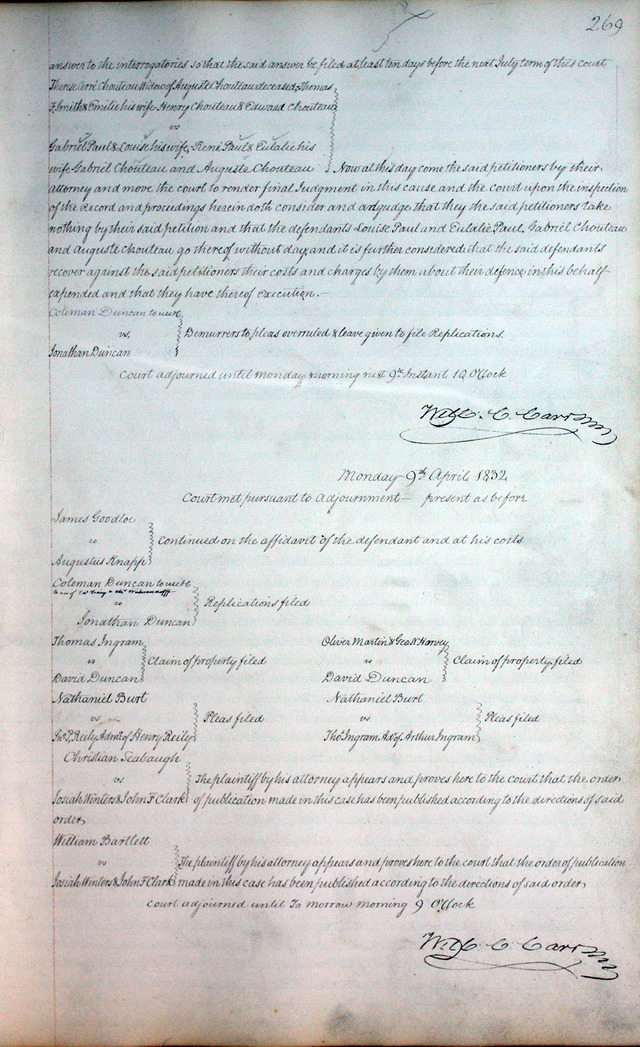 269
answer to the interrogatories so that the said answer be filed at least ten days before the next July term of this court
Therese Cerré Chouteau Widow of Auguste Chouteau deceased, Thomas
F. Smith & Emilie his wife, Henry Chouteau & Edward Chouteau
vs
Gabriel Paul & Louise his wife, René Paul & Eulalie his
wife Gabriel Chouteau and Auguste Chouteau Now at this day come the said petitioners by their
attorney and move the court to render final Judgment in this cause and the Court upon the inspection
of the record and proceedings herein doth consider and adjudge that they the said petitioners take
nothing by their said petition and that the defendants Louise Paul and Eulalie Paul, Gabriel Chouteau
and Auguste Chouteau go thereof without day, and it is further considered that the said defendants
recover against the said petitioners their costs and charges by them about their defence in this behalf
expended and that they have thereof execution.
Coleman Duncan to use &c
vs. Demurrers to pleas overruled & leave given to file Replications.
Jonathan Duncan
Court adjourned until Monday morning next 9th Instant 10 O'Clock
Will. C. Carr
Monday 9th April 1832
Court met pursuant to adjournment — present as before
James Goodloe
vs Continued on the affidavit of the defendant and at his costs
Augustus Knapp
Coleman Duncan to use &c
vs Replications filed
Jonathan Duncan
Thomas Ingram Oliver Martin & Geo N Harvey
vs Claim of property filed vs Claim of property filed
David Duncan David Duncan
Nathaniel Burt Nathaniel Burt
vs Pleas filed vs Pleas filed
Jno P. Reily Admr of Henry Reily Tho Ingram Ad. of Arthur Ingram
Christian Seabaugh
vs The plaintiff by his attorney appears and proves here to the court that the order
Josiah Winters & John F Clark of publication made in this case has been published according to the directions of said
order
William Bartlett
vs The plaintiff by his attorney appears and proves here to the court that the order of publication
Josiah Winters & John F Clark made in this case has been published according to the directions of said order
Court adjourned until To morrow morning 9 O'Clock
Will. C. Carr